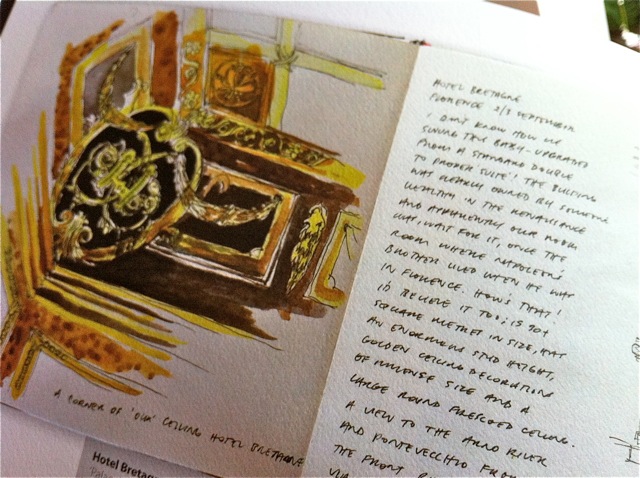 A CORNER OF 'OUR' CEILING HOTEL BRETAGNE
Hotel Bretag
HOTEL BRETAGNE
FLORENCE 2/3 SEPTEMBER
I DON'T KNOW HOW WE
SWUNG THIS BABY - UPGRADED
FROM A STANDARD DOUBLE
TO PROPER SUITE! THE BUILDING
WAS CLEARLY OWNED BY SOMEONE
WEALTHY IN THE RENAISSANCE
AND APPARENTLY OUR ROOM
WAS, WAIT FOR IT, ONCE THE
ROOM WHERE NAPOLEON'S
BROTHER LIVED WHEN HE WAS
IN FLORENCE. HOW'S THAT!
I'D BELIEVE IT TOO; IS 90+
SQUARE METRES IN SIZE, HAS
AN ENORMOUS STUD HEIGHT,
GOLDEN CEILING DECORATIONS
OF IMMENSE SIZE AND A
LARGE ROUND FRESCOED CEILING.
A VIEW TO THE ARNO RIVER
AND PONTEVECCHIO FROM
THE FRONT